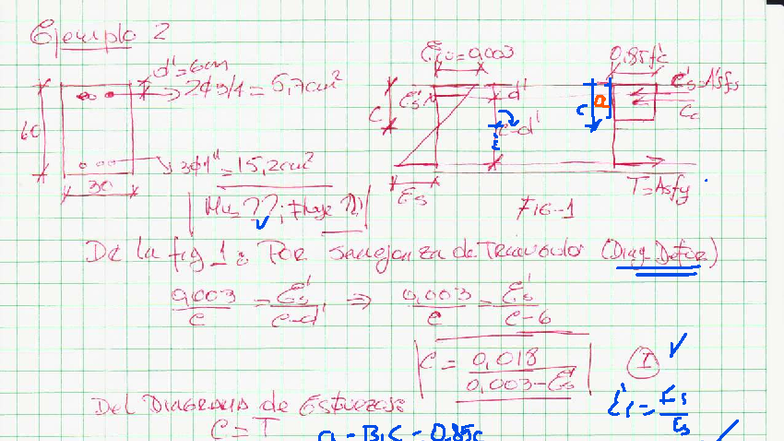 Ejemplo 2
d'=6cm
2φ3/4 = 5,7cm²
60
3φ1" = 15,2cm²
30
Mu ??; Fluye ??
εcu=0,003
0,85f'c
ε's
d'
c
c-d'
εs
C's=A's fs
Cc
a
c
T=Asfy
FIG-1
De la fig 1: Por semejanza de Triángulo (Diag. Defor)
0,003/c = ε's/c-d' ⇒ 0,003/c = ε's/c-6
c = 0,018/0,003-ε's
I
Del Diagrama de Esfuerzos
C=T
a = B1C = 0.85c